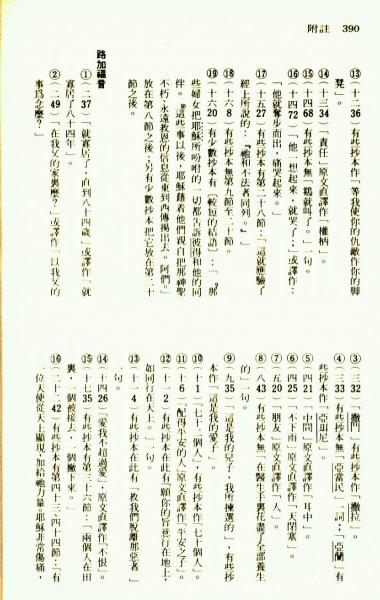 附註 390
⑬（十二36）有些抄本作「等我使你的仇敵作你的脚
凳」。
⑭（十三34）「責任」原文直譯作「權柄」。
⑮（十四68）有些抄本無「鷄就叫了。」一句。
⑯（十四72）「他一想起來，就哭了；」或譯作：
「他就奪步而出，痛哭起來。」
⑰（十五27）有些抄本有第二十八節：「這就應驗了
經上所說的：『祂和不法者同列。』」
⑱（十六8）有些抄本無第九節至二十節。
⑲（十六20）有少數抄本有〔較短的結語〕：「那
些婦女把耶穌所吩咐的一切都告訴彼得和他的同
伴。這些事以後，耶穌藉着他們親自把那神聖
不朽、永遠救恩的信息從東到西傳揚出去。阿們。」
放在第八節之後；另有少數抄本把它放在第二十
節之後。
路加福音
①（二37）「就寡居了，直到八十四歲」或譯作「就
寡居了八十四年」。
②（二49）「在我父的家裏麼？」或譯作「以我父的
事爲念麼？」
③（三32）「撒門」有些抄本作「撒拉」。
④（三33）有些抄本無「亞當民」一詞；「亞蘭」有
些抄本作「亞珥尼」。
⑤（四21）「中間」原文直譯作「耳中」。
⑥（四25）「不下雨」原文直譯作「天閉塞」。
⑦（五20）「朋友」原文直譯作「人」。
⑧（八43）有些抄本無「在醫生手裏花盡了全部養生
的」一句。
⑨（九35）「這是我的兒子，我所揀選的」，有些抄
本作「這是我的愛子」。
⑩（十1）「七十二個人」，有些抄本作「七十個人」。
⑪（十6）「配得平安的人」原文直譯作「平安之子」。
⑫（十一2）有些抄本在此有「願你的旨意行在地上，
如同行在天上。」一句。
⑬（十一4）有些抄本在此有「救我們脫離那惡者」
一句。
⑭（十四26）「愛我不超過愛」，原文直譯作「不恨」。
⑮（十七35）有些抄本有第三十六節：「兩個人在田
裏，一個被接去，一個撇下來。」
⑯（二十二42）有些抄本有第四十三、四十四節：「有
一位天使從天上顯現，加給祂力量。耶穌非常傷痛，